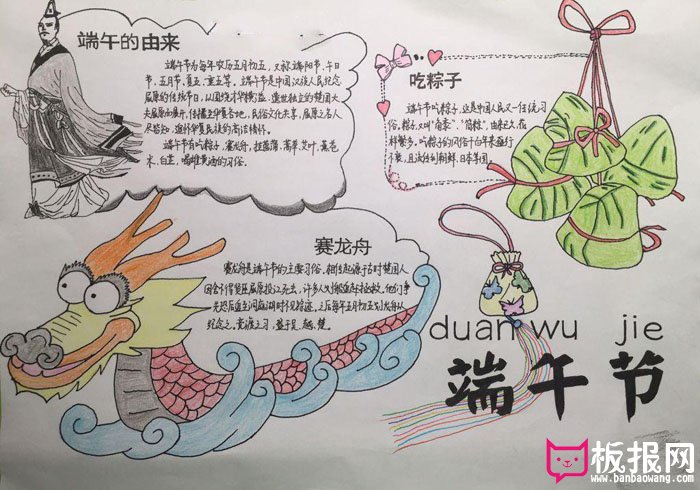 端午节的由来
端午节为每年农历五月初五，又称端阳节，午日
节、五月节、夏五、重五等。端午节是中国汉族人民纪念
屈原的传统节日，以围绕才华横溢、遗世独立的楚国大
夫屈原而展开，传播至华夏各地，民俗文化共享，屈原之名人
尽皆知，追怀华夏民族的高洁情怀。
端午节有吃粽子，赛龙舟，挂菖蒲、蒿草、艾叶，薰苍
术、白芷，喝雄黄酒的习俗。
吃粽子
端午节吃粽子，这是中国人民又一传统习
俗，粽子，又叫"角黍"、"筒粽"，由来已久，花
样繁多。吃粽子的风俗千百年来盛行
不衰，且流传到朝鲜、日本等国。
赛龙舟
赛龙舟是端午节的主要习俗，相传起源于古时楚国人
因舍不得贤臣屈原投江死去，许多人划船追赶拯救。他们争
先恐后追至洞庭湖时不见踪迹，之后每年五月初五划龙舟以
纪念之。竞渡之习，盛于吴、越、楚。
duan wu jie
端午节
板报网
www.banbaowang.com